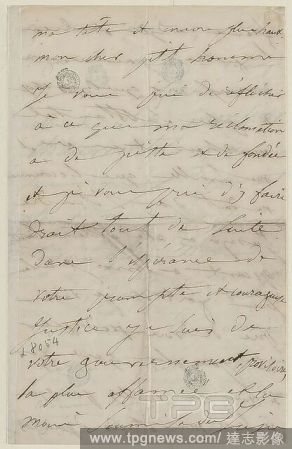 ma tête et mon
mon cher petit homme
Je vous prie de réfléchir
à ce que ma réclamation
a de juste et de fondé
et je vous prie d'y faire
droit tout de suite
Dans l'espérance de
votre prompte et courageuse
justice je suis de
18054
votre gouvernement provisoire,
la plus affamée et la
moins soumise de
TPG
www.tpgnews.com / 達志影像